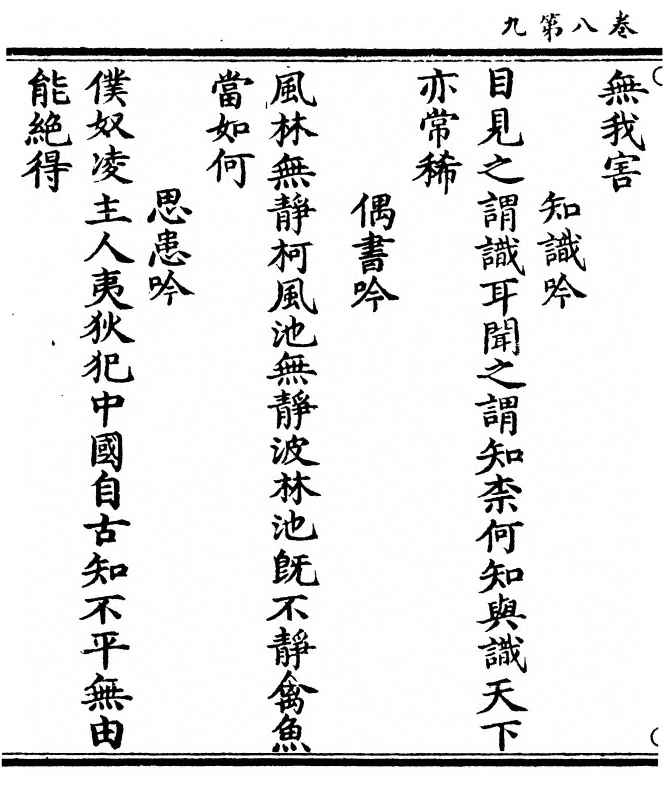 卷八第九
無我害
知識吟
目見之謂識耳聞之謂知柰何知與識天下
亦常稀
偶書吟
風林無靜柯風池無靜波林池旣不靜禽魚
當如何
思患吟
僕奴凌主人夷狄犯中國自古知不平無由
能絕得